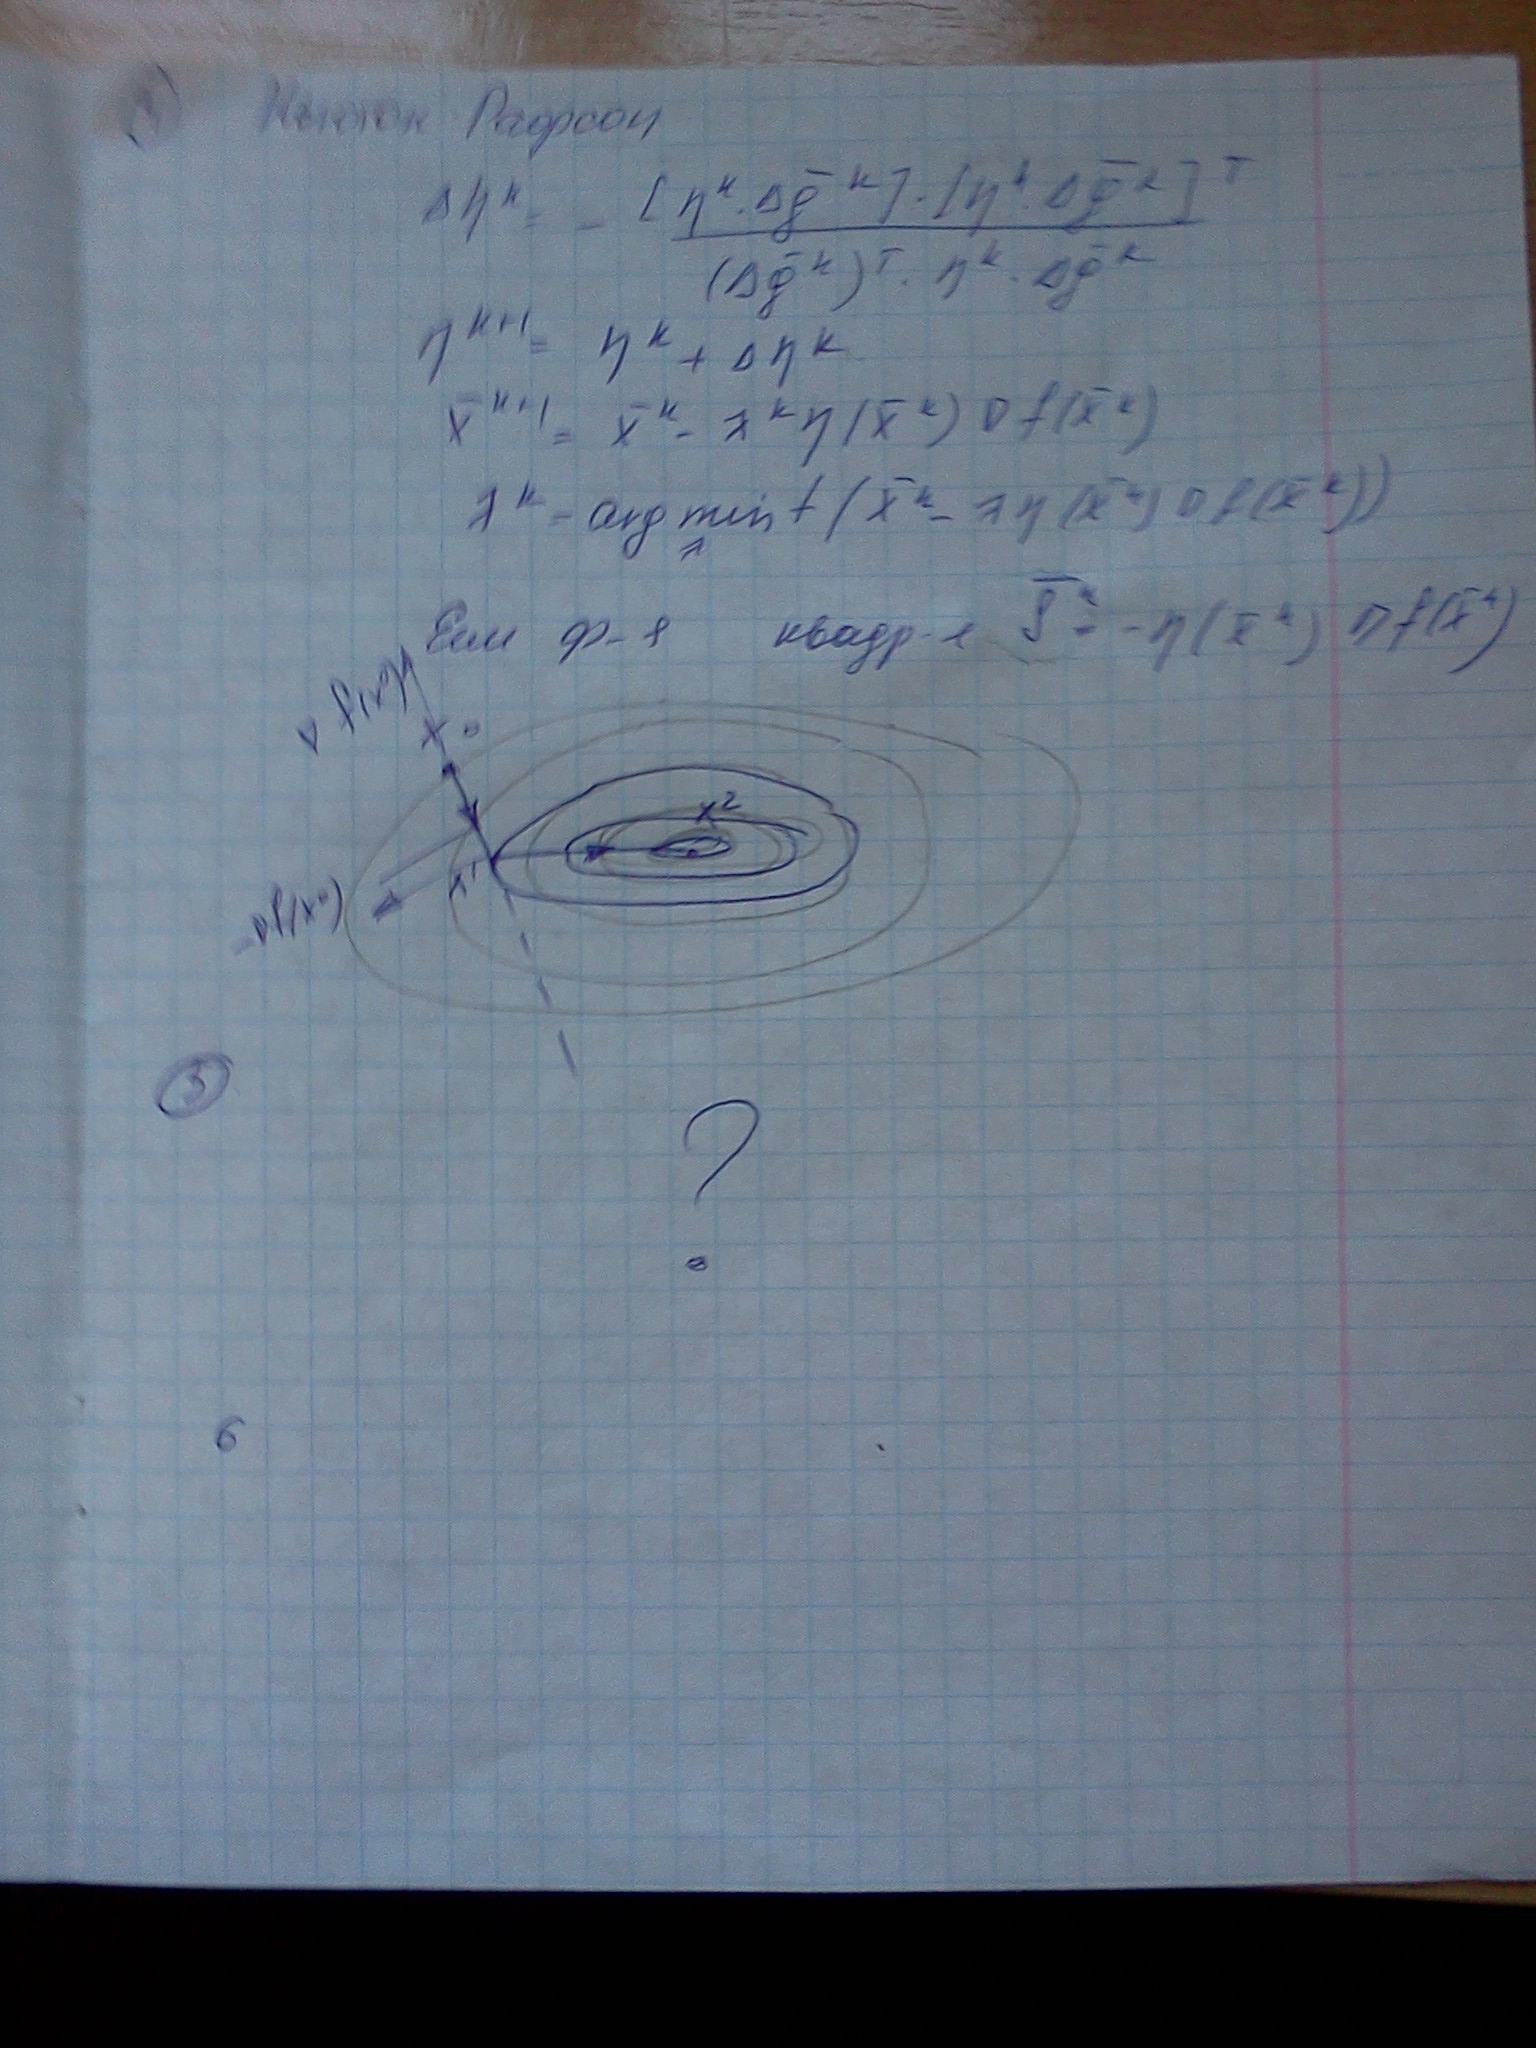 Ньютон Рафсон
Δηᵏ = - [ηᵏ · Δḡᵏ] · [ηᵏ · Δḡᵏ]ᵀ / (Δḡᵏ)ᵀ · ηᵏ · Δḡᵏ
ηᵏ⁺¹ = ηᵏ + Δηᵏ
x̄ᵏ⁺¹ = x̄ᵏ - λᵏ η(x̄ᵏ) ∇f(x̄ᵏ)
λᵏ = arg min f(x̄ᵏ - λ η(x̄ᵏ) ∇f(x̄ᵏ))
λ
Если ф-я квадр-я S̄ᵏ = -η(x̄ᵏ) ∇f(x̄ᵏ)
∇f(x⁰)
x⁰
x²
x¹
-∇f(x⁰)
5
?
6